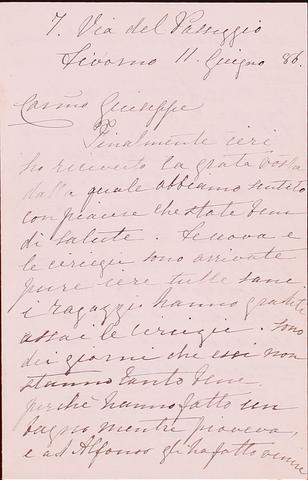 7. Via del Passeggio
Livorno 11 Giugno 86.
Carino Giuseppe
Finalmente ieri
ho ricevuto la grata vostra
dalla quale abbiamo sentito
con piacere che state bene
di salute. Le uova e
le ciriegie sono arrivate
pure ieri tutte sane
i ragazzi hanno gradite
assai le ciriegie. Sono
dei giorni che essi non
stanno tanto bene
perchè hanno fatto un
bagno mentre pioveva,
e ad Alfonso gli ha fatto venire